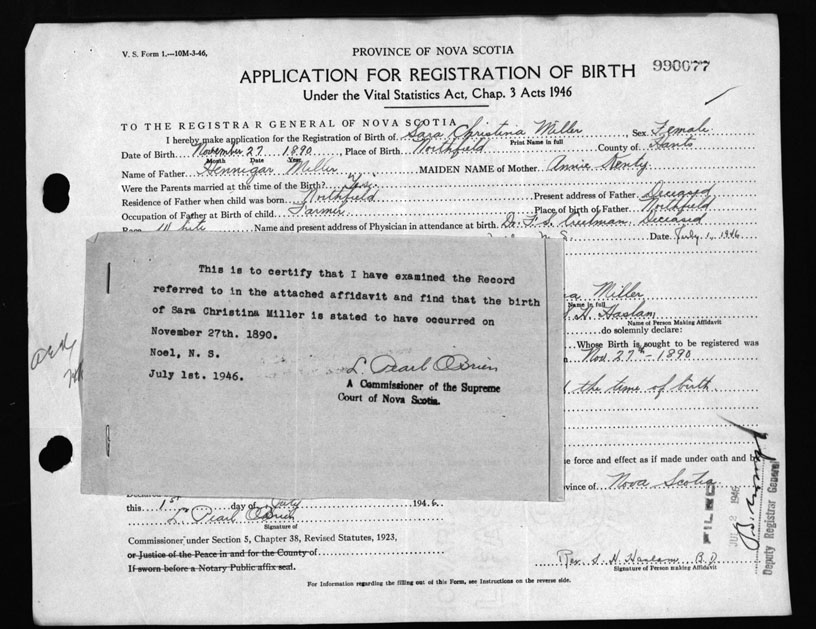 V. S. Form 1.—10M-3-46,
PROVINCE OF NOVA SCOTIA
APPLICATION FOR REGISTRATION OF BIRTH
990677
Under the Vital Statistics Act, Chap. 3 Acts 1946
TO THE REGISTRAR GENERAL OF NOVA SCOTIA
I hereby make application for the Registration of Birth of Sara Christina Miller, Sex Female
Print Name in full
Date of Birth November 27 1890, Place of Birth Northfield County of Hants
Month Date Year
Name of Father Hennigar Miller MAIDEN NAME of Mother Annie
Were the Parents married at the time of the Birth? Yes
Residence of Father when child was born Northfield Present address of Father Deceased
Occupation of Father at Birth of child Farmer Place of birth of Father Northfield
Race White Name and present address of Physician in attendance at birth. Dr. F. S. Creelman, Deceased
N. S. Date July 1, 1946
This is to certify that I have examined the Record
referred to in the attached affidavit and find that the birth
of Sara Christina Miller is stated to have occurred on
November 27th. 1890.
Noel, N. S.
July 1st. 1946.
L. Pearl O'Brien
A Commissioner of the Supreme
Court of Nova Scotia.
Miller
Name in full
H. Haslam
Name of Person Making Affidavit
do solemnly declare:
Whose Birth is sought to be registered was
Nov 27th - 1890
the time of birth
force and effect as if made under oath and by
Province of Nova Scotia
this 1st day of July 1946.
L. Pearl O'Brien
Signature of
Commissioner under Section 5, Chapter 38, Revised Statutes, 1923,
or Justice of the Peace in and for the County of
If sworn before a Notary Public affix seal.
Rev. S. H. Haslam B.D.
Signature of Person making Affidavit
FILED
JUL 2 1946
Deputy Registrar General
For Information regarding the filling out of this Form, see Instructions on the reverse side.